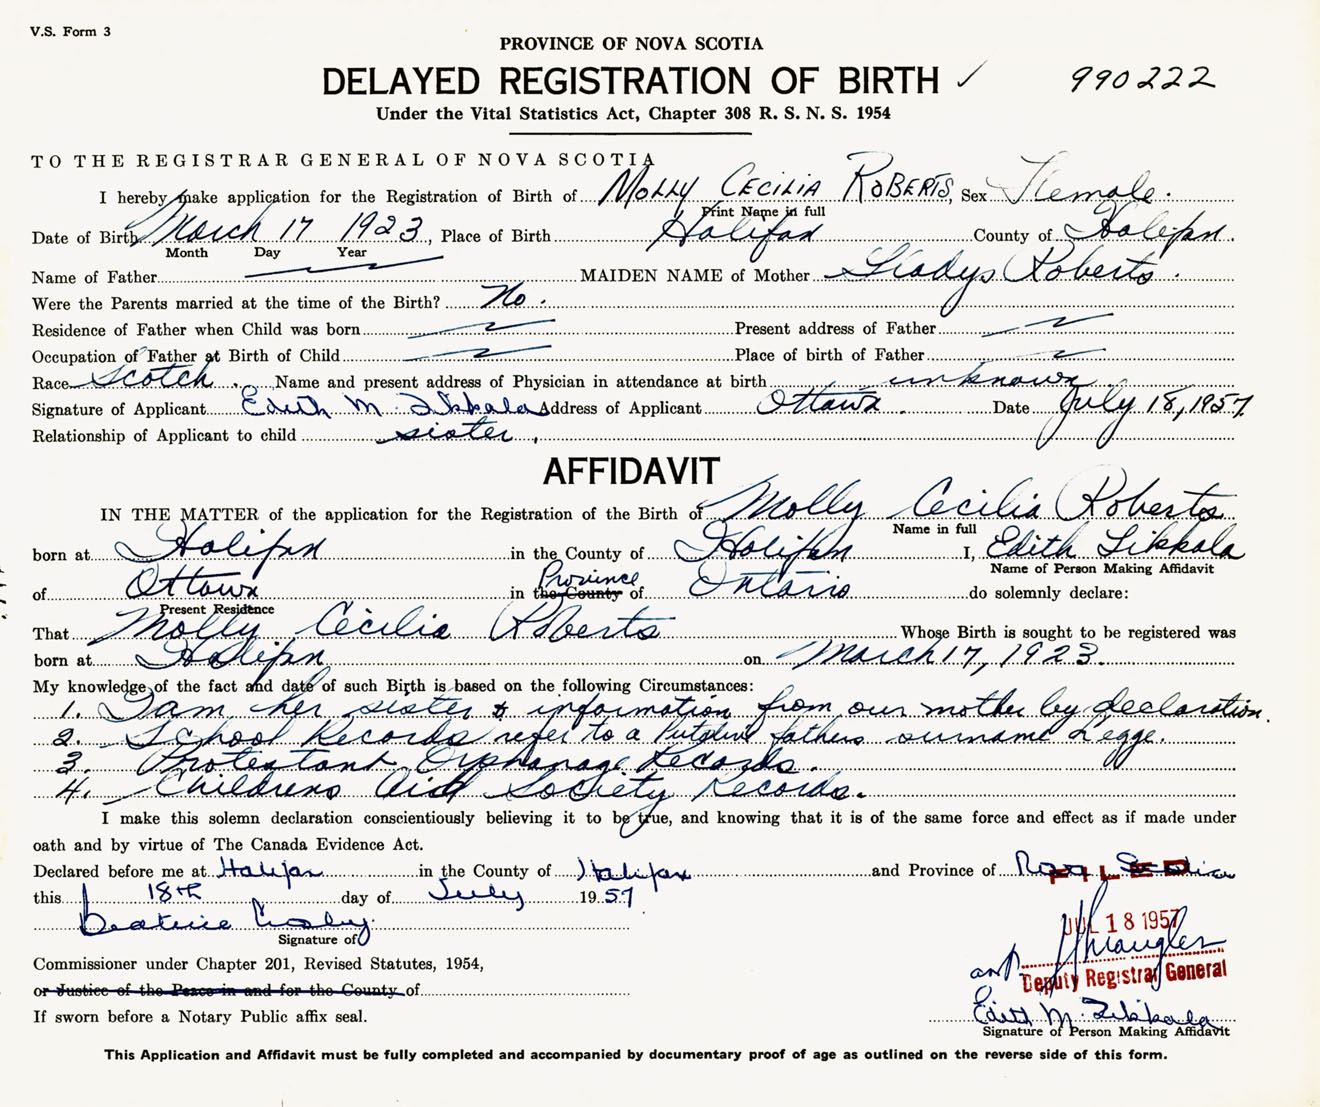 V.S. Form 3
PROVINCE OF NOVA SCOTIA
DELAYED REGISTRATION OF BIRTH ✓ 990222
Under the Vital Statistics Act, Chapter 308 R. S. N. S. 1954
TO THE REGISTRAR GENERAL OF NOVA SCOTIA
I hereby make application for the Registration of Birth of MOLLY CECILIA ROBERTS, Sex Female.
Print Name in full
Date of Birth March 17 1923, Place of Birth Halifax County of Halifax.
Month Day Year
Name of Father MAIDEN NAME of Mother Gladys Roberts.
Were the Parents married at the time of the Birth? No.
Residence of Father when Child was born Present address of Father
Occupation of Father at Birth of Child Place of birth of Father
Race Scotch. Name and present address of Physician in attendance at birth unknown
Signature of Applicant Edith M. Likkala Address of Applicant Ottawa. Date July 18, 1957
Relationship of Applicant to child sister.
AFFIDAVIT
IN THE MATTER of the application for the Registration of the Birth of Molly Cecilia Roberts
Name in full
born at Halifax in the County of Halifax I, Edith Likkala
Name of Person Making Affidavit
of Ottawa in the County Province of Ontario do solemnly declare:
Present Residence
That Molly Cecilia Roberts Whose Birth is sought to be registered was
born at Halifax on March 17, 1923.
My knowledge of the fact and date of such Birth is based on the following Circumstances:
1. I am her sister & information from our mother by declaration.
2. School Records refer to a Putative fathers surname Legge.
3. Protestant Orphanage Records.
4. Childrens Aid Society Records.
I make this solemn declaration conscientiously believing it to be true, and knowing that it is of the same force and effect as if made under
oath and by virtue of The Canada Evidence Act.
Declared before me at Halifax in the County of Halifax and Province of Nova Scotia
FILED
this 18th day of July 1957
Beatrice Crosby
Signature of
JUL 18 1957
Commissioner under Chapter 201, Revised Statutes, 1954,
Deputy Registrar General
or Justice of the Peace in and for the County of
If sworn before a Notary Public affix seal.
Edith M. Likkala
Signature of Person Making Affidavit
This Application and Affidavit must be fully completed and accompanied by documentary proof of age as outlined on the reverse side of this form.